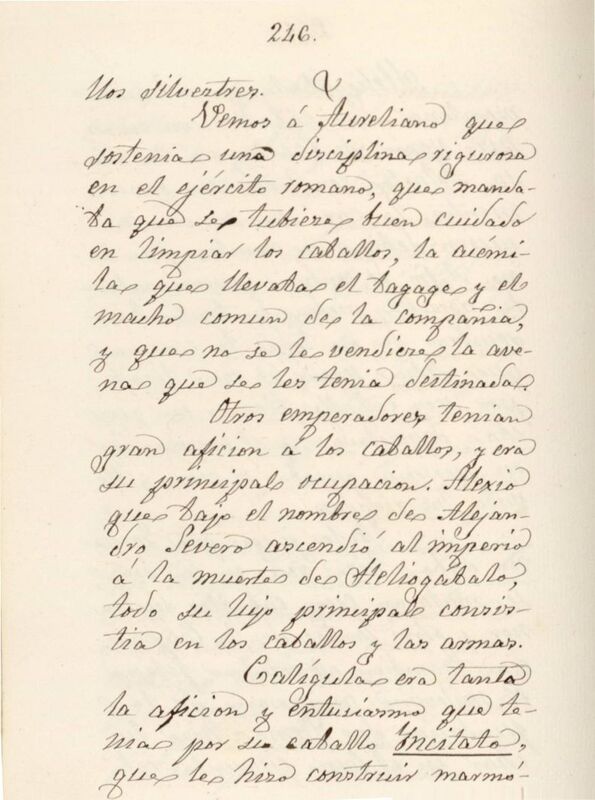 246.
llos silvestres.
Vemos á Aureliano que
sostenia una disciplina rigurosa
en el ejército romano, que manda-
ba que se tubiere buen cuidado
en limpiar los caballos, la acémi-
la que llevaba el bagage y el
macho comun de la compañia,
y que no se le vendiere la ave-
na que se les tenia destinada.
Otros emperadores tenian
gran aficion á los caballos, y era
su principal ocupacion. Alexio
que bajo el nombre de Alejan-
dro Severo ascendió al imperio
á la muerte de Heliogábalo,
todo su lujo principal consis-
tia en los caballos y las armas.
Calígula era tanta
la aficion y entusiasmo que te-
nia por su caballo Yncitato,
que le hizo construir marmó-